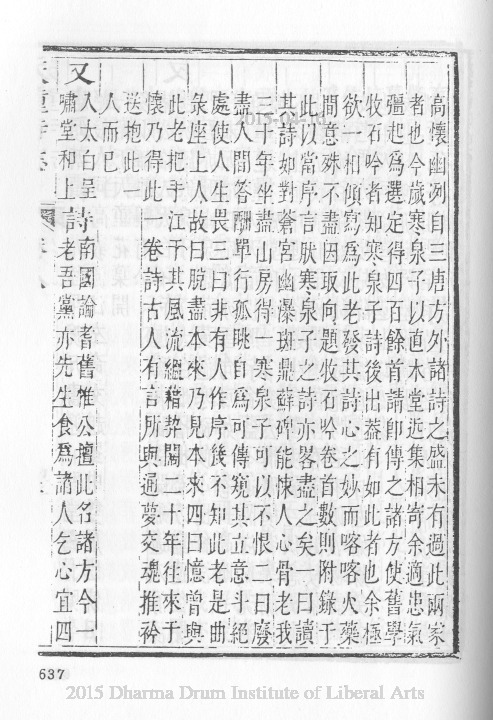 高懷幽冽自三唐方外諸詩之盛未有過此兩家
者也今歲寒泉子以直木堂近集相寄余適患氣
彊起為選定得四百餘首請卽傳之諸方使舊學
牧石吟者知寒泉子詩後出葢有如此者也余極
欲一相傾寫為此老發其詩心之妙而喀喀火藥
間意殊不盡因取向題牧石吟卷首數則附錄于
此以當序言狀寒泉子之詩亦畧盡之矣一曰讀
其詩如對蒼宮幽瀑斑鼎蘚碑能悚人心骨老我
三十年坐盡山房得一寒泉子可以不恨二曰廢
盡人間答酬單行孤眺自為可傳窺其立意斗絕
處使人生畏三曰非有人作序後不知此老是曲
彔座上人故曰脫盡本來乃見本來四曰憶曾與
此老把手江干其風流縕藉契闊二十年往來于
懷乃得此一卷詩古人有言所與通夢交魂推衿
送抱此一
人而已
又
入太白呈
嘯堂和上
詩
南國論耆舊惟公擅此名諸方今一
老吾黨亦先生食為諸人乞心宜四
637
2015 Dharma Drum Institute of Liberal Arts